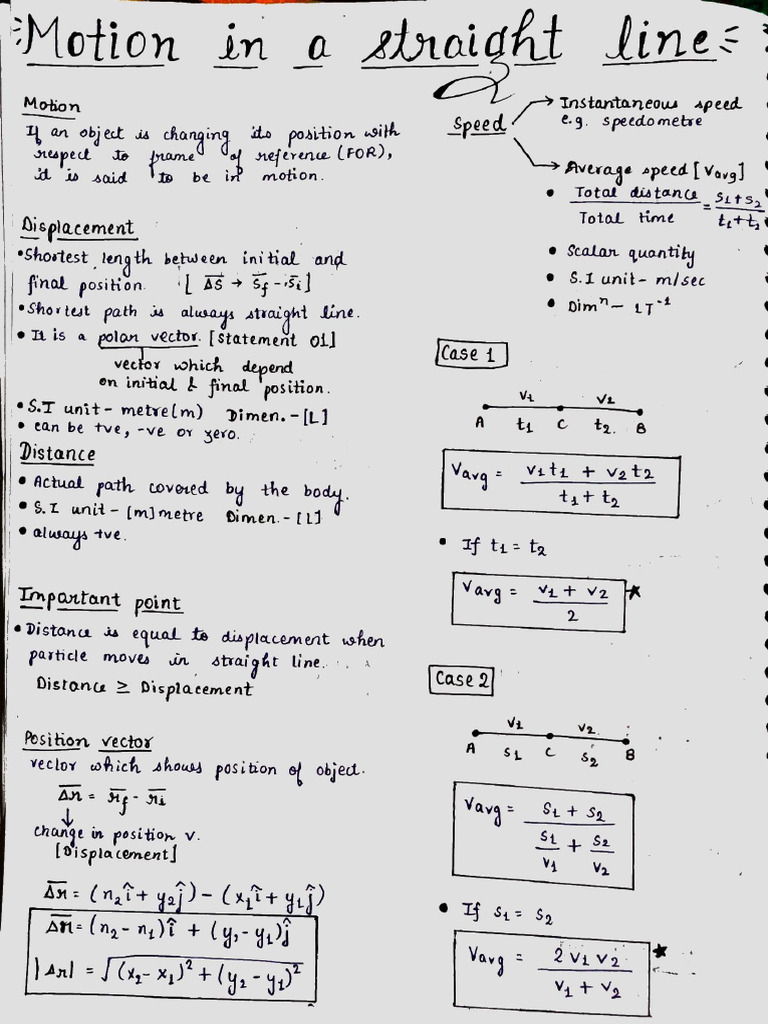 Motion in a straight line
Motion
If an object is changing its position with
respect to frame of reference (FOR),
it is said to be in motion.
Displacement
• Shortest length between initial and
final position. [ΔS → Sf - Si]
• Shortest path is always straight line.
• It is a polar vector. [Statement 01]
vector which depend
on initial & final position.
• S.I unit - metre(m) Dimen. - [L]
• can be +ve, -ve or zero.
Distance
• Actual path covered by the body.
• S.I unit - [m] metre Dimen. - [L]
• always +ve.
Important point
• Distance is equal to displacement when
particle moves in straight line.
Distance ≥ Displacement
Position vector
vector which shows position of object.
Δr = rf - ri
↓
change in position v.
[Displacement]
Δr = (x2î + y2ĵ) - (x1î + y1ĵ)
Δr = (x2 - x1)î + (y2 - y1)ĵ
|Δr| = √(x2 - x1)² + (y2 - y1)²
Speed
Instantaneous speed
e.g. speedometre
Average speed [Vavg]
• Total distance / Total time = s1+s2 / t1+t2
• Scalar quantity
• S.I unit - m/sec
• Dimⁿ - 1T⁻¹
Case 1
V1 V2
A t1 C t2 B
Vavg = v1t1 + v2t2 / t1 + t2
• If t1 = t2
Vavg = v1 + v2 / 2
Case 2
V1 V2
A s1 C s2 B
Vavg = s1 + s2 / s1/v1 + s2/v2
• If s1 = s2
Vavg = 2 v1 v2 / v1 + v2